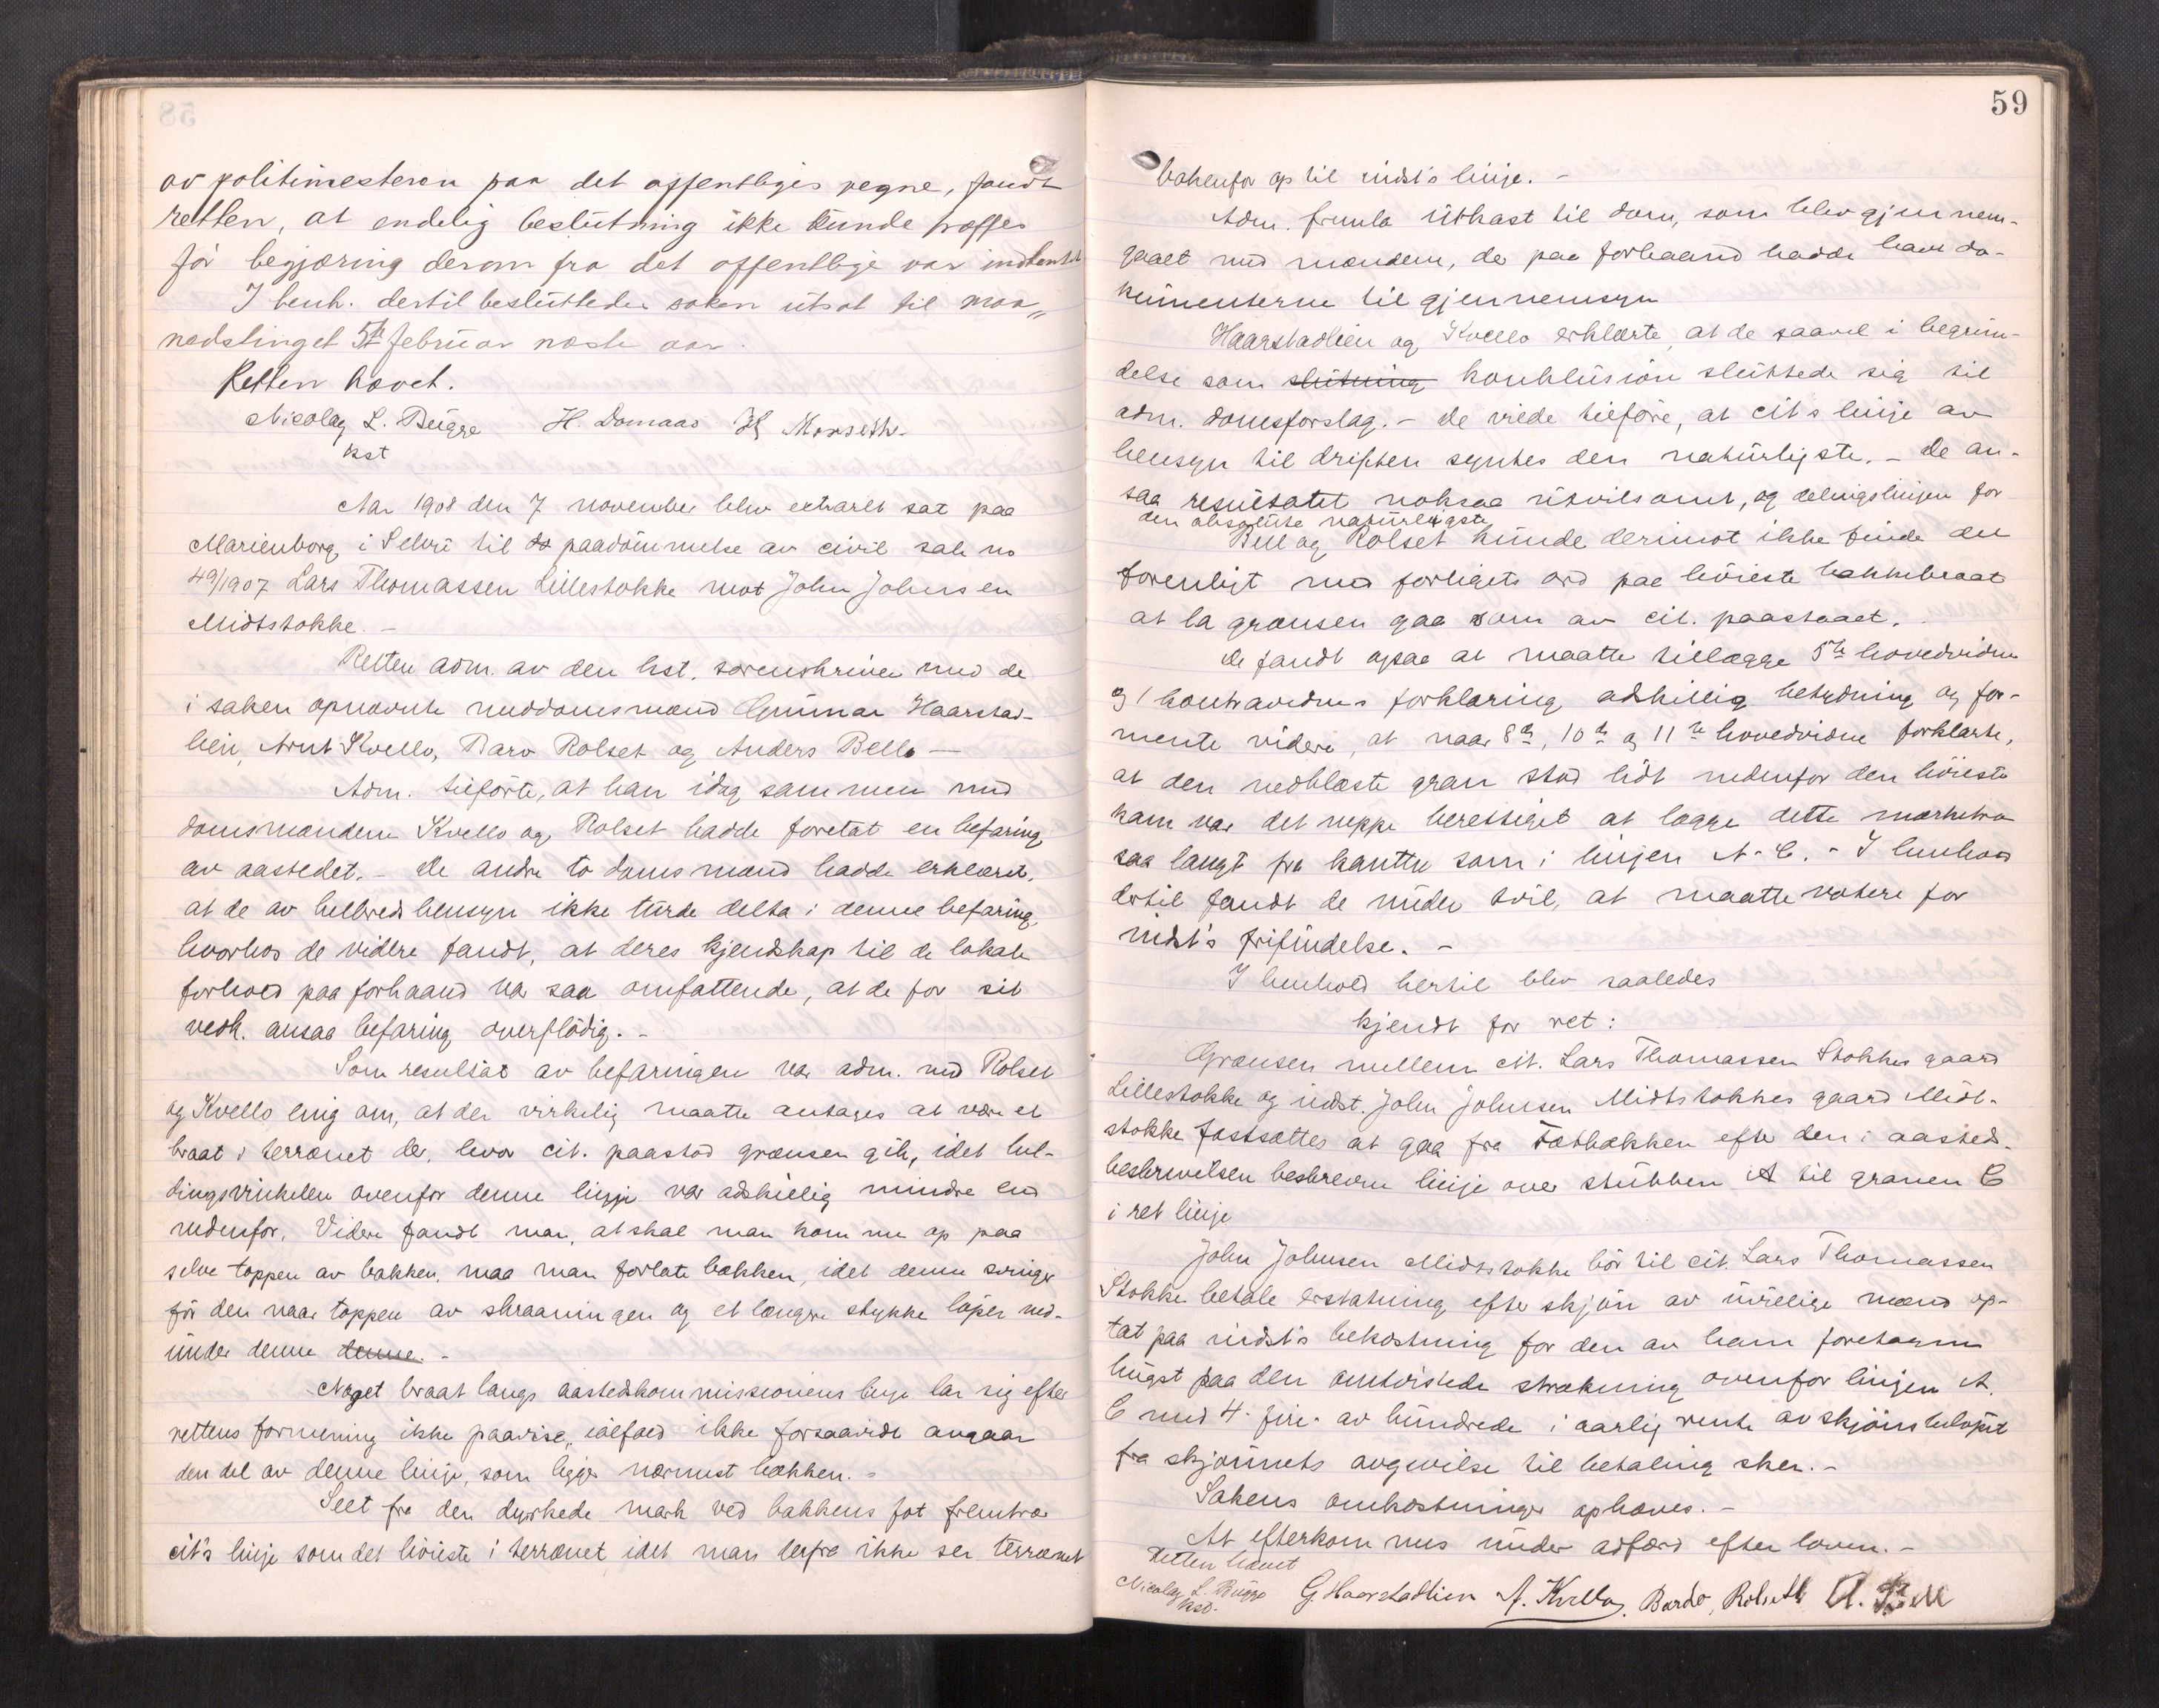 av politimesteren paa det offentliges vegne, fandt
retten, at endelig beslutning ikke kunde træffes
før begjæring derom fra det offentlige var indhentet
I henh. dertil besluttedes saken utsat til maa„
nedstinget 5te februar næste aar.
Retten hævet.
Nicolay L. Bugge H. Domaas Monseth.
kst
Aar 1908 den 7 november blev extraret sat paa
Marienborg i Selbu til do paadömmelse av civil sak no
49/1907 Lars Thomassen Lillestokke mot John Johnsen
Midtstokke. –
Retten adm. av den kst. sorenskriver med de
i saken opnævnte meddomsmænd Gunnar Haarstad-
lien, Arnt Kvello, Baro Rolset og Anders Bell –
Adm. tilførte, at han idag sammen med
domsmændene Kvello og Rolset hadde foretat en befaring
av aastedet. – De andre to domsmænd hadde erklæret,
at de av helbredshensyn ikke turde delta i denne befaring,
hvorhos de videre fandt, at deres kjendskap til de lokale
forhold paa forhaand var saa omfattende, at de for sit
vedk. ansaa befaring overflödig. –
Som resultat av befaringen var adm. med Rolset
og Kvello enig om, at der virkelig maatte antages at være et
braat i terrænet der, hvor cit. paastod grænsen gik, idet hel-
dingsvinkelen ovenfor denne linje var adskillig mindre end
nedenfor. Videre fandt man, at skal man komme op paa
selve toppen av bakken, maa man forlate bækken, idet denne svinger
før den naar toppen av skraaningen og et længre stykke løper ned-
under denne denne. –
Noget braat langs aastedskommissionens linje lar sig efter
rettens formening ikke paavise, ialfald ikke forsaavidt angaar
den del av denne linje, som ligger nærmest bækken. –
Seet fra den dyrkede mark ved bakkens fot fremtrær
cit's linje som det höieste i terrænet idet man derfra ikke ser terrænet
59
bakenfor op til indst's linje. –
Adm. fremla utkast til dom, som blev gjennem-
gaaet med mændene, der paa forhaand hadde havt do-
kumenterne til gjennemsyn
Haarstadlien og Kvello erklærte, at de saavel i begrun-
delse som slutning konklusion sluttede sig til
adm. domsforslag. – De vilde tilføre, at cit's linje av
hensyn til driften syntes den naturligste. – De an-
saa resultatet noksaa utvilsomt, og delingslinjen for
den absolute naturligste
Bell og Rolset kunde derimot ikke finde det
forenligt med forligets ord paa höieste bakkebraat
at la grænsen gaa som av cit. paastaaet.
De fandt ogsaa at maatte tillægge 5te hovedvidne
og 1 kontravidnes forklaring adskillig betydning og for-
mente videre, at naar 8de, 10de og 11te hovedvidne forklarte,
at den nedblæste gran stod lidt nedenfor den höieste
kam var det neppe berettiget at lægge dette merketræ
saa langt fra kanten som i linjen A-C. – I henhold
dertil fandt de under tvil, at maatte votere for
indst's frifindelse. –
I henhold hertil blev saaledes
kjendt for ret:
Grænsen mellem cit. Lars Thomassen Stokkes gaard
Lillestokke og indst. John Johnsen Midtstokkes gaard Midt-
stokke fastsættes at gaa fra Tøtbækken efter den i aasteds-
beskrivelsen beskrevne linje over stubben A til granen C
i ret linje
John Johnsen Midtstokke bör til cit. Lars Thomassen
Stokke betale erstatning efter skjön av uvillige mænd op-
tat paa indst's bekostning for den av ham foretagne
hugst paa den omtvistede strækning ovenfor linjen A.
C med 4. fire. av hundrede i aarlig rente av skjönsbelöpet
fra skjönnets avgivelse til betaling sker. –
Sakens omkostninger ophæves. –
At efterkommes under adfærd efter loven. –
Retten hævet
Nicolay L. Bugge G. Haarstadlien A. Kvello, Bardo, Rolseth A. Bell
kst.